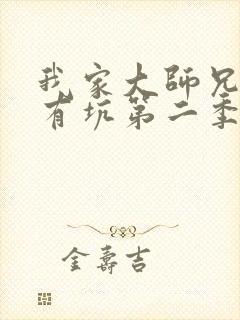 我家大師兄
有坑第二季
金壽吉